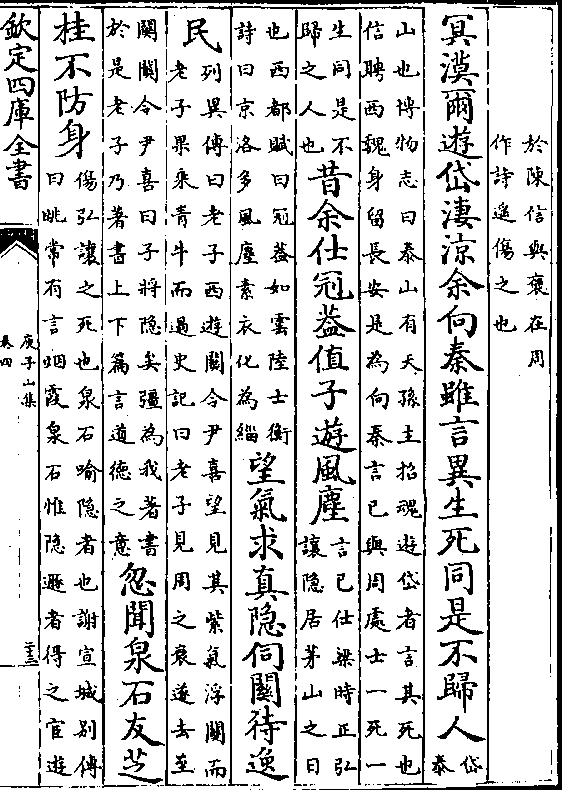 於陳信與褒在周
作詩遥傷之也
冥漠爾遊岱淒涼余向秦雖言異生死同是不歸人岱
泰
山也博物志曰泰山有天孫主招魂遊岱者言其死也
信聘西魏身留長安是為向秦言已與周處士一死一
生同是不
歸之人也
昔余仕冠葢值子遊風塵
言已仕梁時正弘
讓隐居茅山之日
也西都賦曰冠葢如雲陸士衡
詩曰京洛多風塵素衣化為緇
望氣求真隐伺闗待逸
民
列異傳曰老子西遊闗令尹喜望見其紫氣浮闗而
老子果乘青牛而過史記曰老子見周之衰遂去至
闗闗令尹喜曰子將隐矣彊為我著書
於是老子乃著書上下篇言道德之意
忽聞泉石友芝
桂不防身
傷弘讓之死也泉石喻隐者也謝宣城别傳
曰眺常有言烟霞泉石惟隐遯者得之宦遊
欽定四庫全書
庾子山集
卷四
二十三